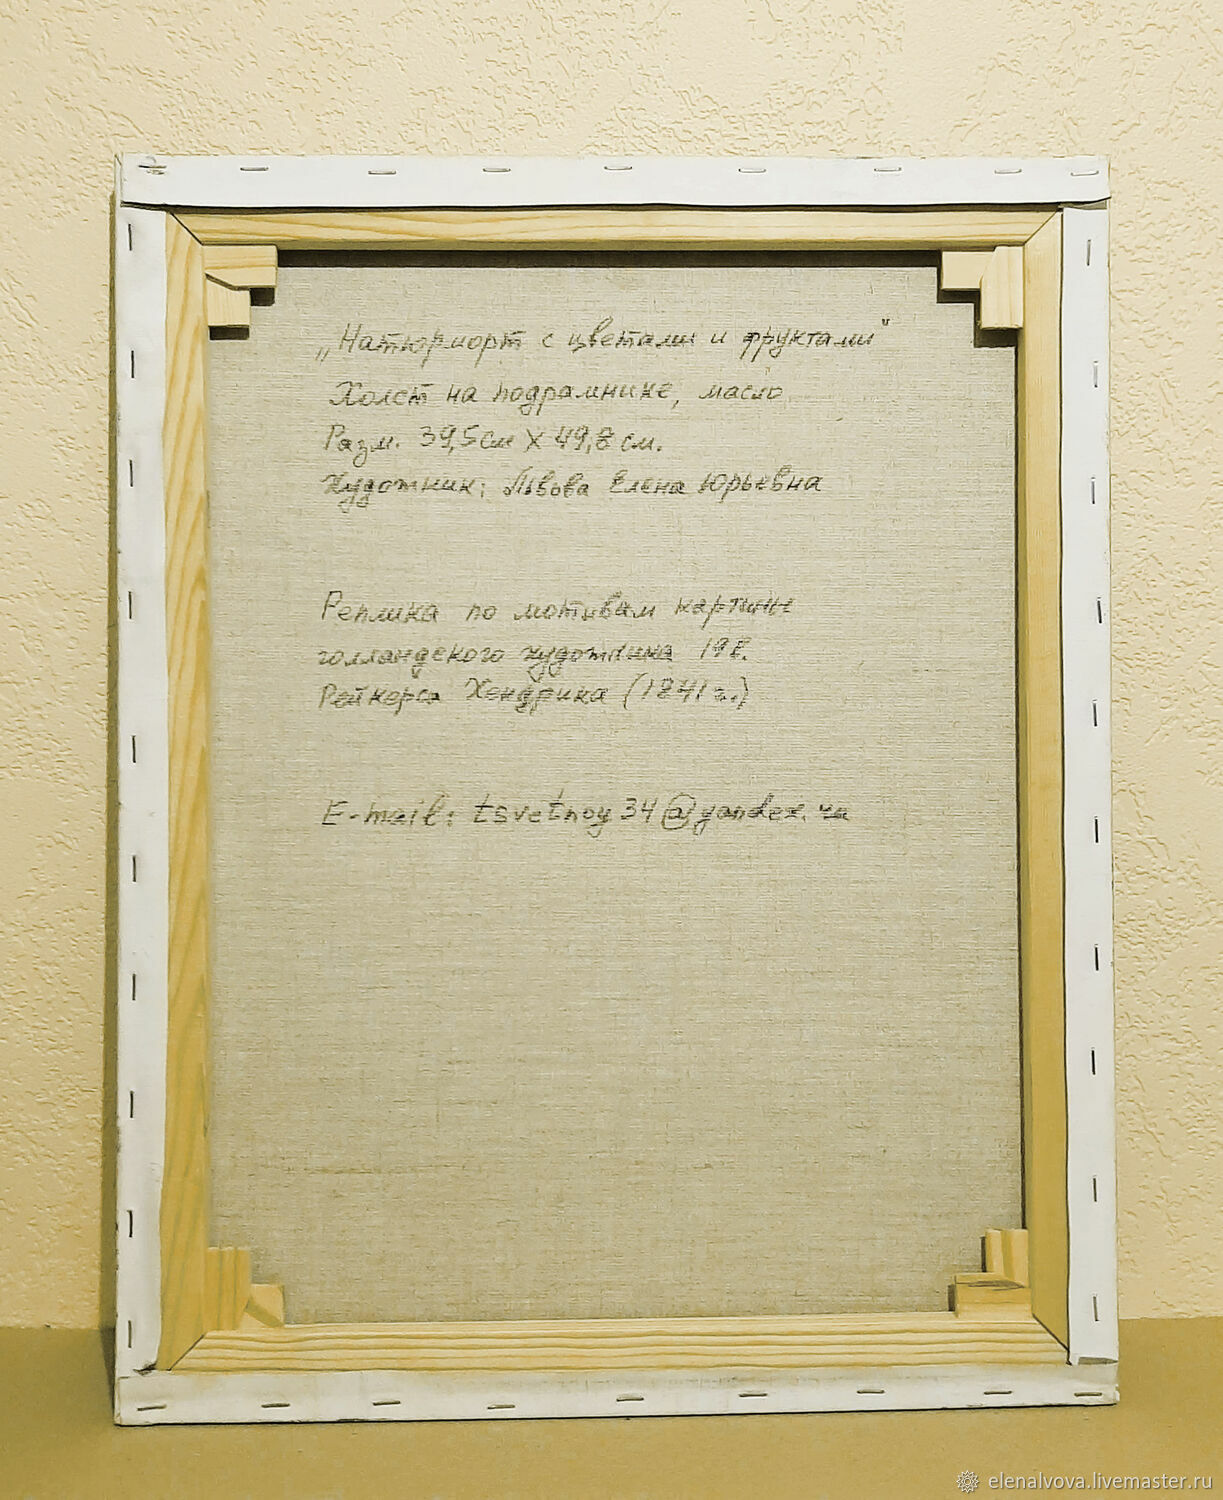 „Натюрморт с цветами и фруктами"
Холст на подрамнике, масло
Разм. 39,5см X 49,8 см.
Художник: Львова Елена Юрьевна
Реплика по мотивам картины
голландского художника 19в.
Рейкерса Хендрика (1841г.)
E-mail: tsvetnoy34@yandex.ru
elenalvova.livemaster.ru